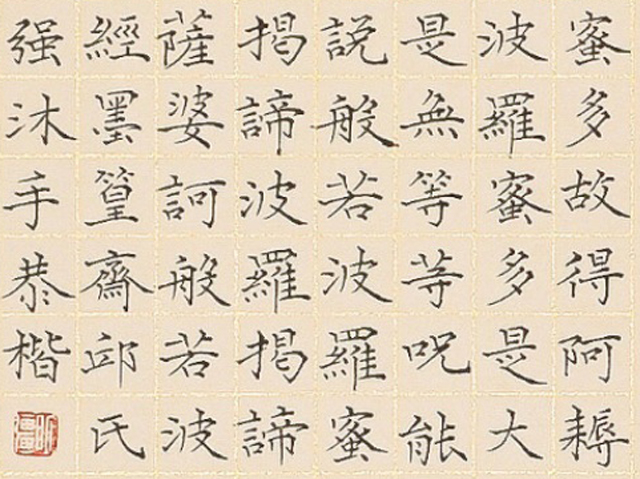 蜜多故得阿耨
波羅蜜多是大
是無等等呪能
説般若波羅蜜
揭諦波羅揭諦
薩婆訶般若波
經墨篁齋邱氏
强沐手恭楷